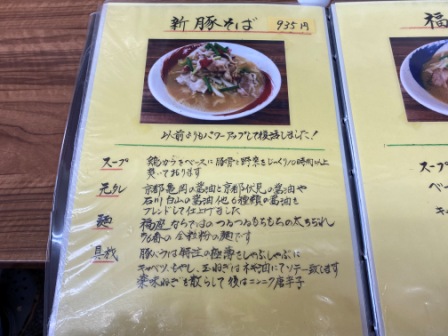 新豚そば 935円
以前よりもパワーアップして復活しました！
スープ 鶏ガラをベースに豚骨と野菜をじっくり10時間以上
炊いております
元タレ 京都亀岡の醤油と京都伏見の醤油や
石川白山の醤油他、6種類の醤油を
ブレンドして仕上げました
麺 福座ならではのつるつるもちもちの太ちぢれ
96番の全粒粉の麺です
具材 豚バラは特注の極薄さしゃぶしゃぶに
キャベツ、もやし、玉ねぎは木桶油にてソテー致します
薬味ねぎを散らして後はニンニク唐辛子
福